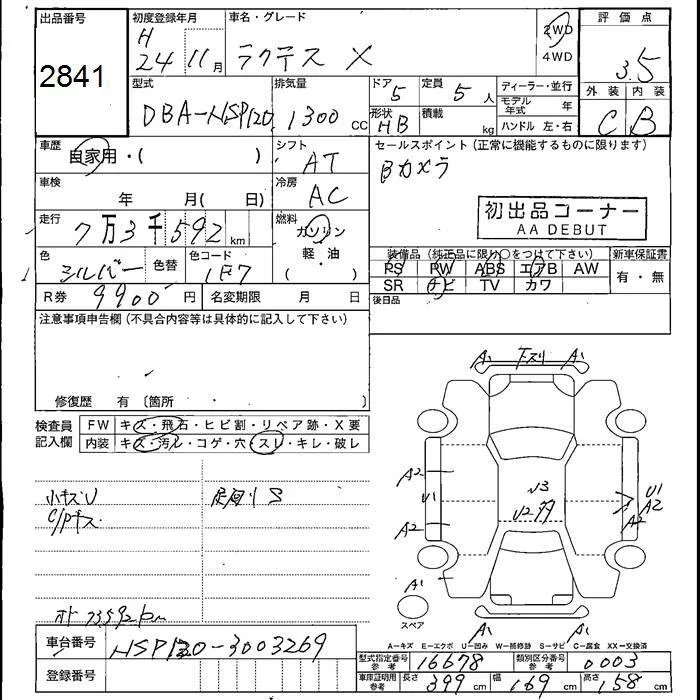 出品番号
2841
初度登録年月
H
24 11月
車名・グレード
ラクティス X
2WD
4WD
評価点
3.5
外装 内装
C B
型式
DBA-NSP120
排気量
1300 cc
ドア
5
定員
5 人
形状
HB
積載
kg
ディーラー・並行
モデル年式 年
ハンドル 左・右
車歴
自家用・( )
シフト
AT
セールスポイント (正常に機能するものに限ります)
Bカメラ
車検
年 月( 日)
冷房
AC
初出品コーナー
AA DEBUT
走行
7万3千592km
燃料
ガソリン
・
軽・油
( )
色
シルバー
色替
色コード
1F7
装備品 (純正品に限り○をつけて下さい)
PS PW ABS エアB AW
SR ナビ TV カワ
新車保証書
有・無
後日品
R券 9900円
名変期限 月 日
注意事項申告欄 (不具合内容等は具体的に記入して下さい)
修復歴 有 〔箇所
検査員
記入欄
FW キズ・飛石・ヒビ割・リペア跡・X要
内装 キズ・汚レ・コゲ・穴・スレ・キレ・破レ
小キズU
C/Pキズ
S
73592km
A1 下スリ A1
A2
U1
A2
U3
U2
U1
A2
A2
A1
スペア
A1 A1
A-キズ E-エクボ U-凹み W-補修跡 S-サビ C-腐食 XX-交換済
車台番号
NSP120-3003269
登録番号
型式指定番号
参考
16678
類別区分番号
参考
0003
車庫証明用
参考
長さ 399cm
幅 169cm
高さ 158cm